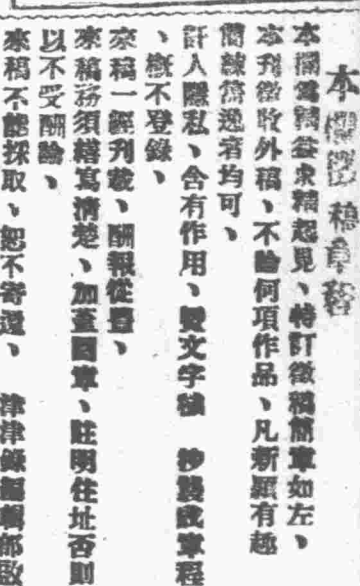 本欄徵稿章程
本欄為精益求精起見、特訂徵稿簡章如左、
本刊徵收外稿、不論何項作品、凡新穎有趣
簡練雋逸者均可、
訐人隱私、含有作用、文字 抄襲 章程
、概不登錄、
來稿一經刊載、酬報從豐、
來稿務須繕寫清楚、加蓋圖章、註明住址否則
以不受酬論、
來稿不能採取、恕不寄還、 津津錄編輯部啟